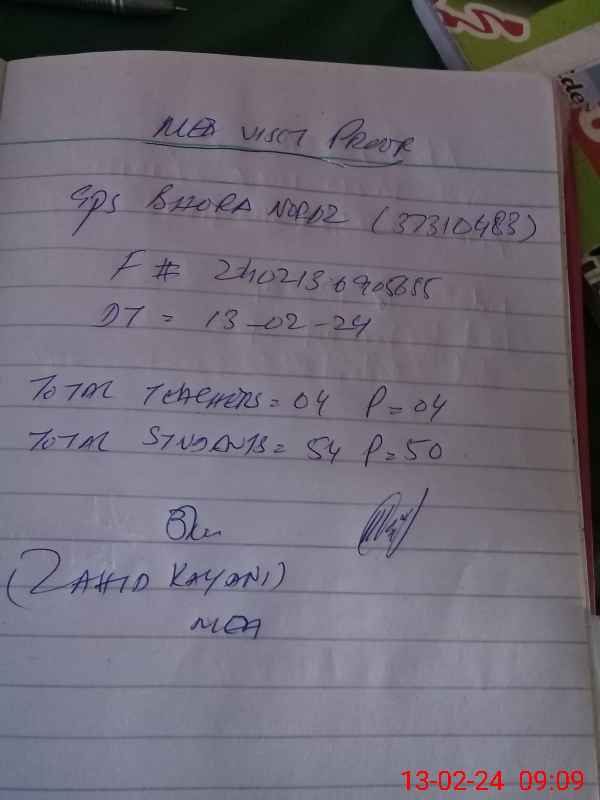 MEA VISIT PROOF
GPS BHORA NOPAZ (37310483)
F # 2402136905655
DT = 13-02-24
TOTAL TEACHERS = 04 P = 04
TOTAL STUDANTS = 54 P = 50
(ZAHID KAYANI)
MEA
13-02-24 09:09